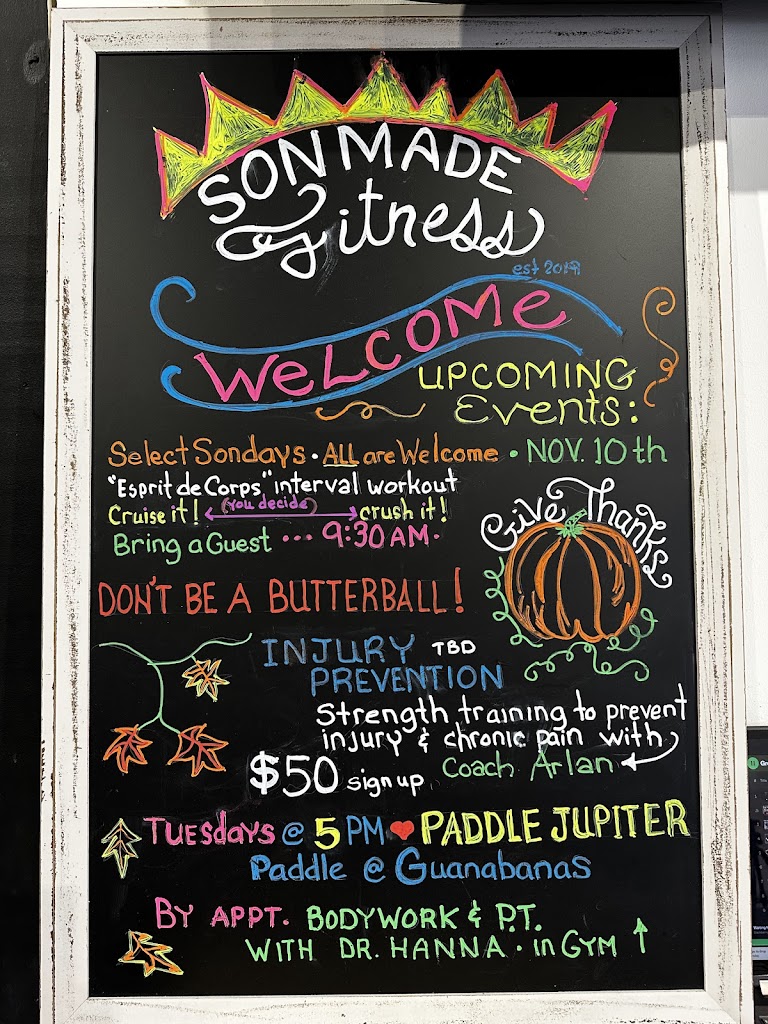 SONMADE
Fitness
est 2019
WELCOME
UPCOMING
Events:
Select Sondays • ALL are Welcome • NOV. 10th
"Esprit de Corps" interval workout
Cruise it! (You decide) crush it!
Bring a Guest ••• 9:30 AM.
Give Thanks
DON'T BE A BUTTERBALL!
INJURY TBD
PREVENTION
Strength training to prevent
injury & chronic pain with
$50 sign up Coach Arlan
TUESDAYS @ 5 PM ♥ PADDLE JUPITER
Paddle @ Guanabanas
BY APPT. BODYWORK & P.T.
WITH DR. HANNA • in GYM ↑